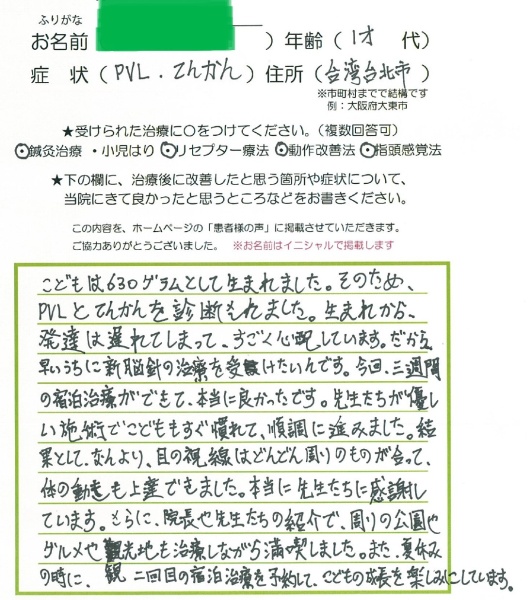 ふりがな
お名前　　　　　）年齢（1才　代）
症　状（PVL・てんかん）住所（台湾台北市）
※市町村までで結構です
例：大阪府大東市
★受けられた治療に○をつけてください。（複数回答可）
⦿鍼灸治療　・小児はり　⦿リセプター療法　⦿動作改善法　⦿指頭感覚法
★下の欄に、治療後に改善したと思う箇所や症状について、
当院にきて良かったと思うところなどをお書きください。
この内容を、ホームページの「患者様の声」に掲載させていただきます。
ご協力ありがとうございました。　※お名前はイニシャルで掲載します
こどもは630グラムとして生まれました。そのため、
PVLとてんかんを診断されました。生まれから、
発達は遅れてしまって、すごく心配しています。だから、
早いうちに新脳針の治療を受けたいんです。今回、三週間
の宿泊治療ができて、本当に良かったです。先生たちが優し
い施術でこどももすぐ慣れて、順調に進みました。結
果として、なんより、目の視線はどんどん周りのものが合って、
体の動きも上達できました。本当に先生たちに感謝し
ています。さらに、院長や先生たちの紹介で、周りの公園や
グルメや観光地も治療しながら満喫しました。また、夏休み
の時に、二回目の宿泊治療を予約して、こどもの成長を楽しみにしています。